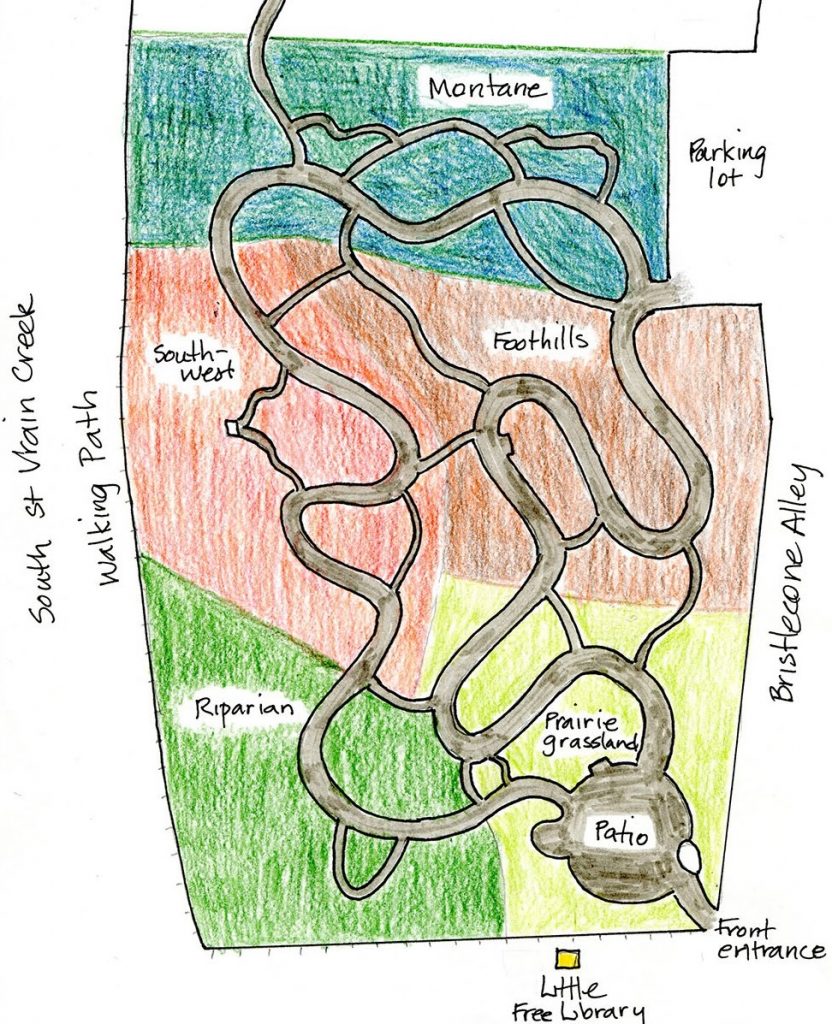 Montane
Parking
lot
Foothills
South-
west
South St Vrain Creek
Walking Path
Bristlecone Alley
Riparian
Prairie
grassland
Patio
Front
entrance
Little
Free Library